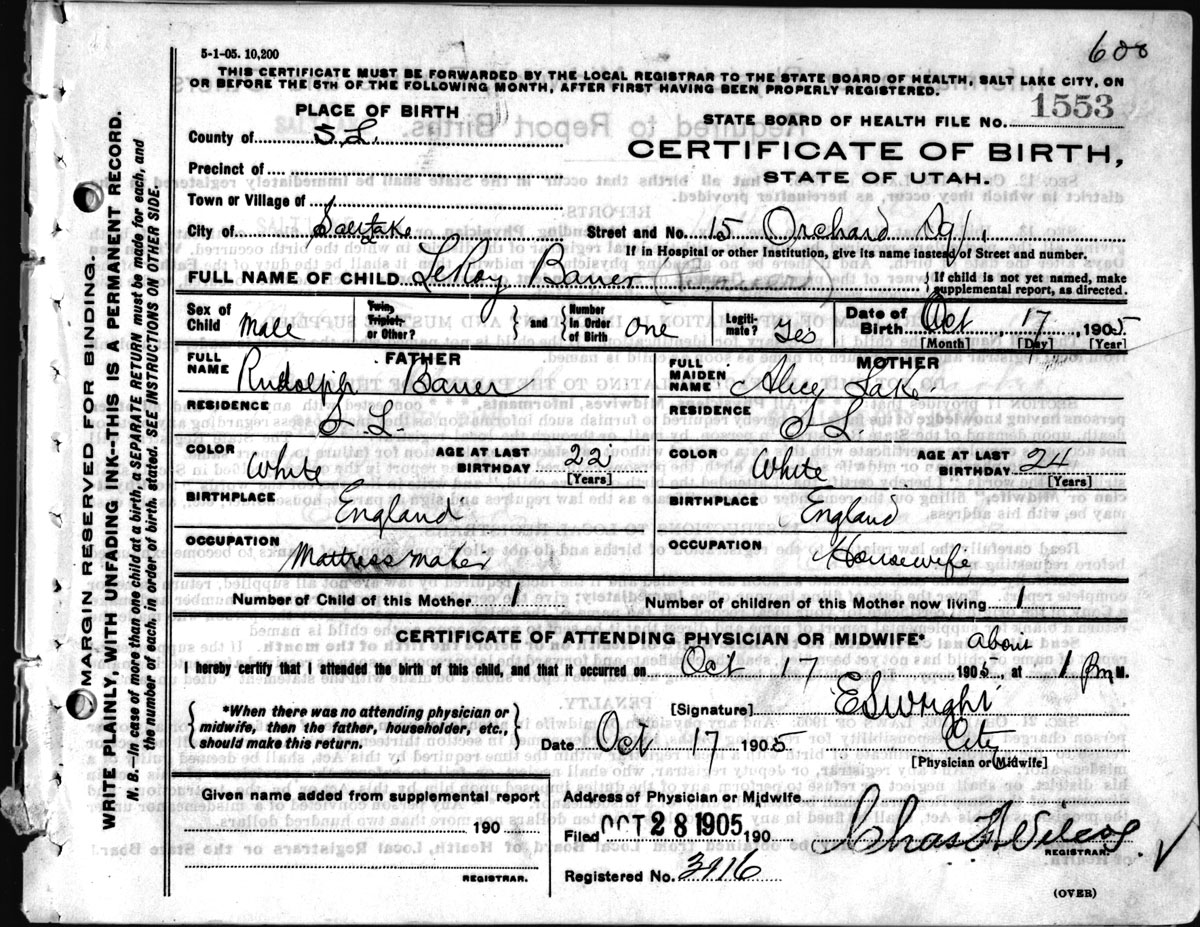 5-1-05. 10,200
600
THIS CERTIFICATE MUST BE FORWARDED BY THE LOCAL REGISTRAR TO THE STATE BOARD OF HEALTH, SALT LAKE CITY, ON
OR BEFORE THE 5TH OF THE FOLLOWING MONTH, AFTER FIRST HAVING BEEN PROPERLY REGISTERED.
PLACE OF BIRTH
STATE BOARD OF HEALTH FILE NO. 1553
County of S. L.
CERTIFICATE OF BIRTH,
STATE OF UTAH.
Precinct of
Town or Village of
City of Salt Lake Street and No. 15 Orchard
If in Hospital or other Institution, give its name instead of Street and number.
FULL NAME OF CHILD LeRoy Bauer
If child is not yet named, make
supplemental report, as directed.
Sex of Child Male
Twin, Triplet, or Other? and Number in Order of Birth one
Legiti-mate? Yes
Date of Birth Oct 17, 1905
[Month] [Day] [Year]
FATHER
FULL NAME Rudolph Bauer
RESIDENCE S. L.
COLOR White AGE AT LAST BIRTHDAY 22 [Years]
BIRTHPLACE England
OCCUPATION Mattress maker
MOTHER
FULL MAIDEN NAME Alicy Lake
RESIDENCE S L.
COLOR White AGE AT LAST BIRTHDAY 24 [Years]
BIRTHPLACE England
OCCUPATION Housewife
Number of Child of this Mother 1 Number of children of this Mother now living 1
CERTIFICATE OF ATTENDING PHYSICIAN OR MIDWIFE*
about
I hereby certify that I attended the birth of this child, and that it occurred on Oct 17 1905, at 1 Pm M.
*When there was no attending physician or
midwife, then the father, householder, etc.,
should make this return.
[Signature] E S Wright
Date Oct 17 1905 City
[Physician or Midwife]
Given name added from supplemental report
190
REGISTRAR.
Address of Physician or Midwife
Filed OCT 28 1905 190 Chas F. Wilcox
REGISTRAR.
Registered No. 3916
(OVER)
MARGIN RESERVED FOR BINDING.
WRITE PLAINLY, WITH UNFADING INK--THIS IS A PERMANENT RECORD.
N. B.--In case of more than one child at a birth, a SEPARATE RETURN must be made for each, and
the number of each, in order of birth, stated. SEE INSTRUCTIONS ON OTHER SIDE.